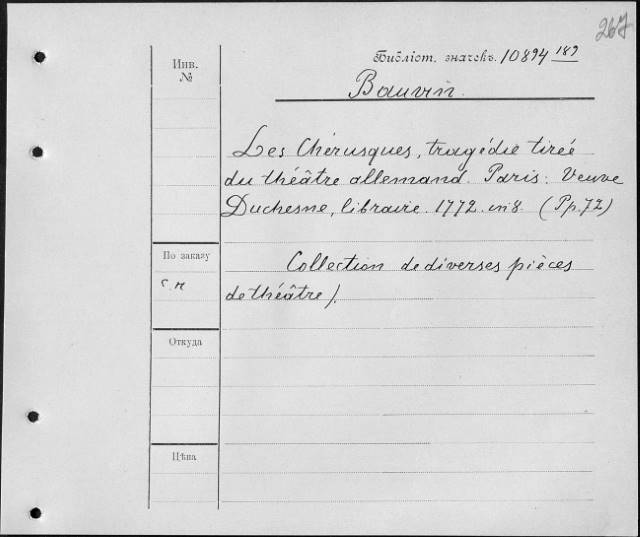 267
Инв.
№
Библіот. значекъ. 10894 189
Bauvin.
Les Chérusques, tragédie tirée
du théâtre allemand. Paris: Veuve
Duchesne, libraire. 1772. in 8. (Pp. 72)
По заказу
Collection de diverses pièces
de théâtre).
Откуда
Цѣна